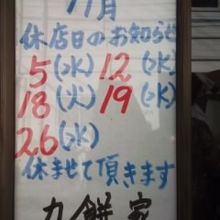 11月
休店日のお知らせ
5(水) 12(水)
18(火) 19(水)
26(水)
休ませて頂きます
力餅家